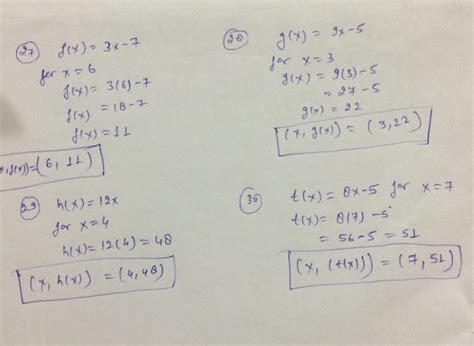 27 f(x) = 3x-7
for x=6
f(x) = 3(6)-7
f(x) = 18-7
f(x) = 11
(x, f(x)) = (6, 11)
28 g(x) = 9x-5
for x=3
g(x) = 9(3)-5
= 27-5
g(x) = 22
(x, g(x)) = (3,22)
29 h(x) = 12x
for x=4
h(x) = 12(4) = 48
(x, h(x)) = (4,48)
30 t(x) = 8x-5 for x=7
t(x) = 8(7)-5
= 56-5 = 51
(x, (t(x)) = (7,51)